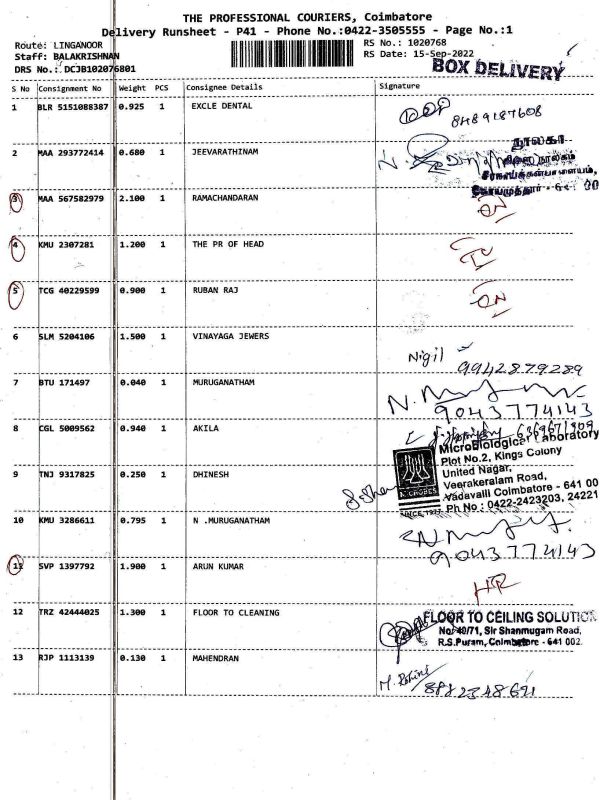 THE PROFESSIONAL COURIERS, Coimbatore
Delivery Runsheet - P41 - Phone No.:0422-3505555 - Page No.:1
Route: LINGANOOR
Staff: BALAKRISHNAN
DRS No.: DCJB102076801
RS No.: 1020768
RS Date: 15-Sep-2022
BOX DELIVERY
S No Consignment No Weight PCS Consignee Details Signature
1 BLR 5151088387 0.925 1 EXCLE DENTAL 8489187608
2 MAA 293772414 0.680 1 JEEVARATHINAM
3 MAA 567582979 2.100 1 RAMACHANDARAN
4 KMU 2307281 1.200 1 THE PR OF HEAD
5 TCG 40229599 0.900 1 RUBAN RAJ
6 SLM 5204106 1.500 1 VINAYAGA JEWERS Nigil 9942879289
7 BTU 171497 0.040 1 MURUGANATHAM 9043774143
8 CGL 5009562 0.940 1 AKILA 6369671809
MicroBiological Laboratory
Plot No.2, Kings Colony
United Nagar,
Veerakeralam Road,
Vadavalli Coimbatore - 641 00
Ph No : 0422-2423203, 24221
MICROBES
SINCE 1977
9 TNJ 9317825 0.250 1 DHINESH
10 KMU 3286611 0.795 1 N .MURUGANATHAM 9043774143
11 SVP 1397792 1.900 1 ARUN KUMAR
12 TRZ 42444025 1.300 1 FLOOR TO CLEANING
FLOOR TO CEILING SOLUTION
No: 40/71, Sir Shanmugam Road,
R.S.Puram, Coimbatore - 641 002.
13 RJP 1113139 0.130 1 MAHENDRAN